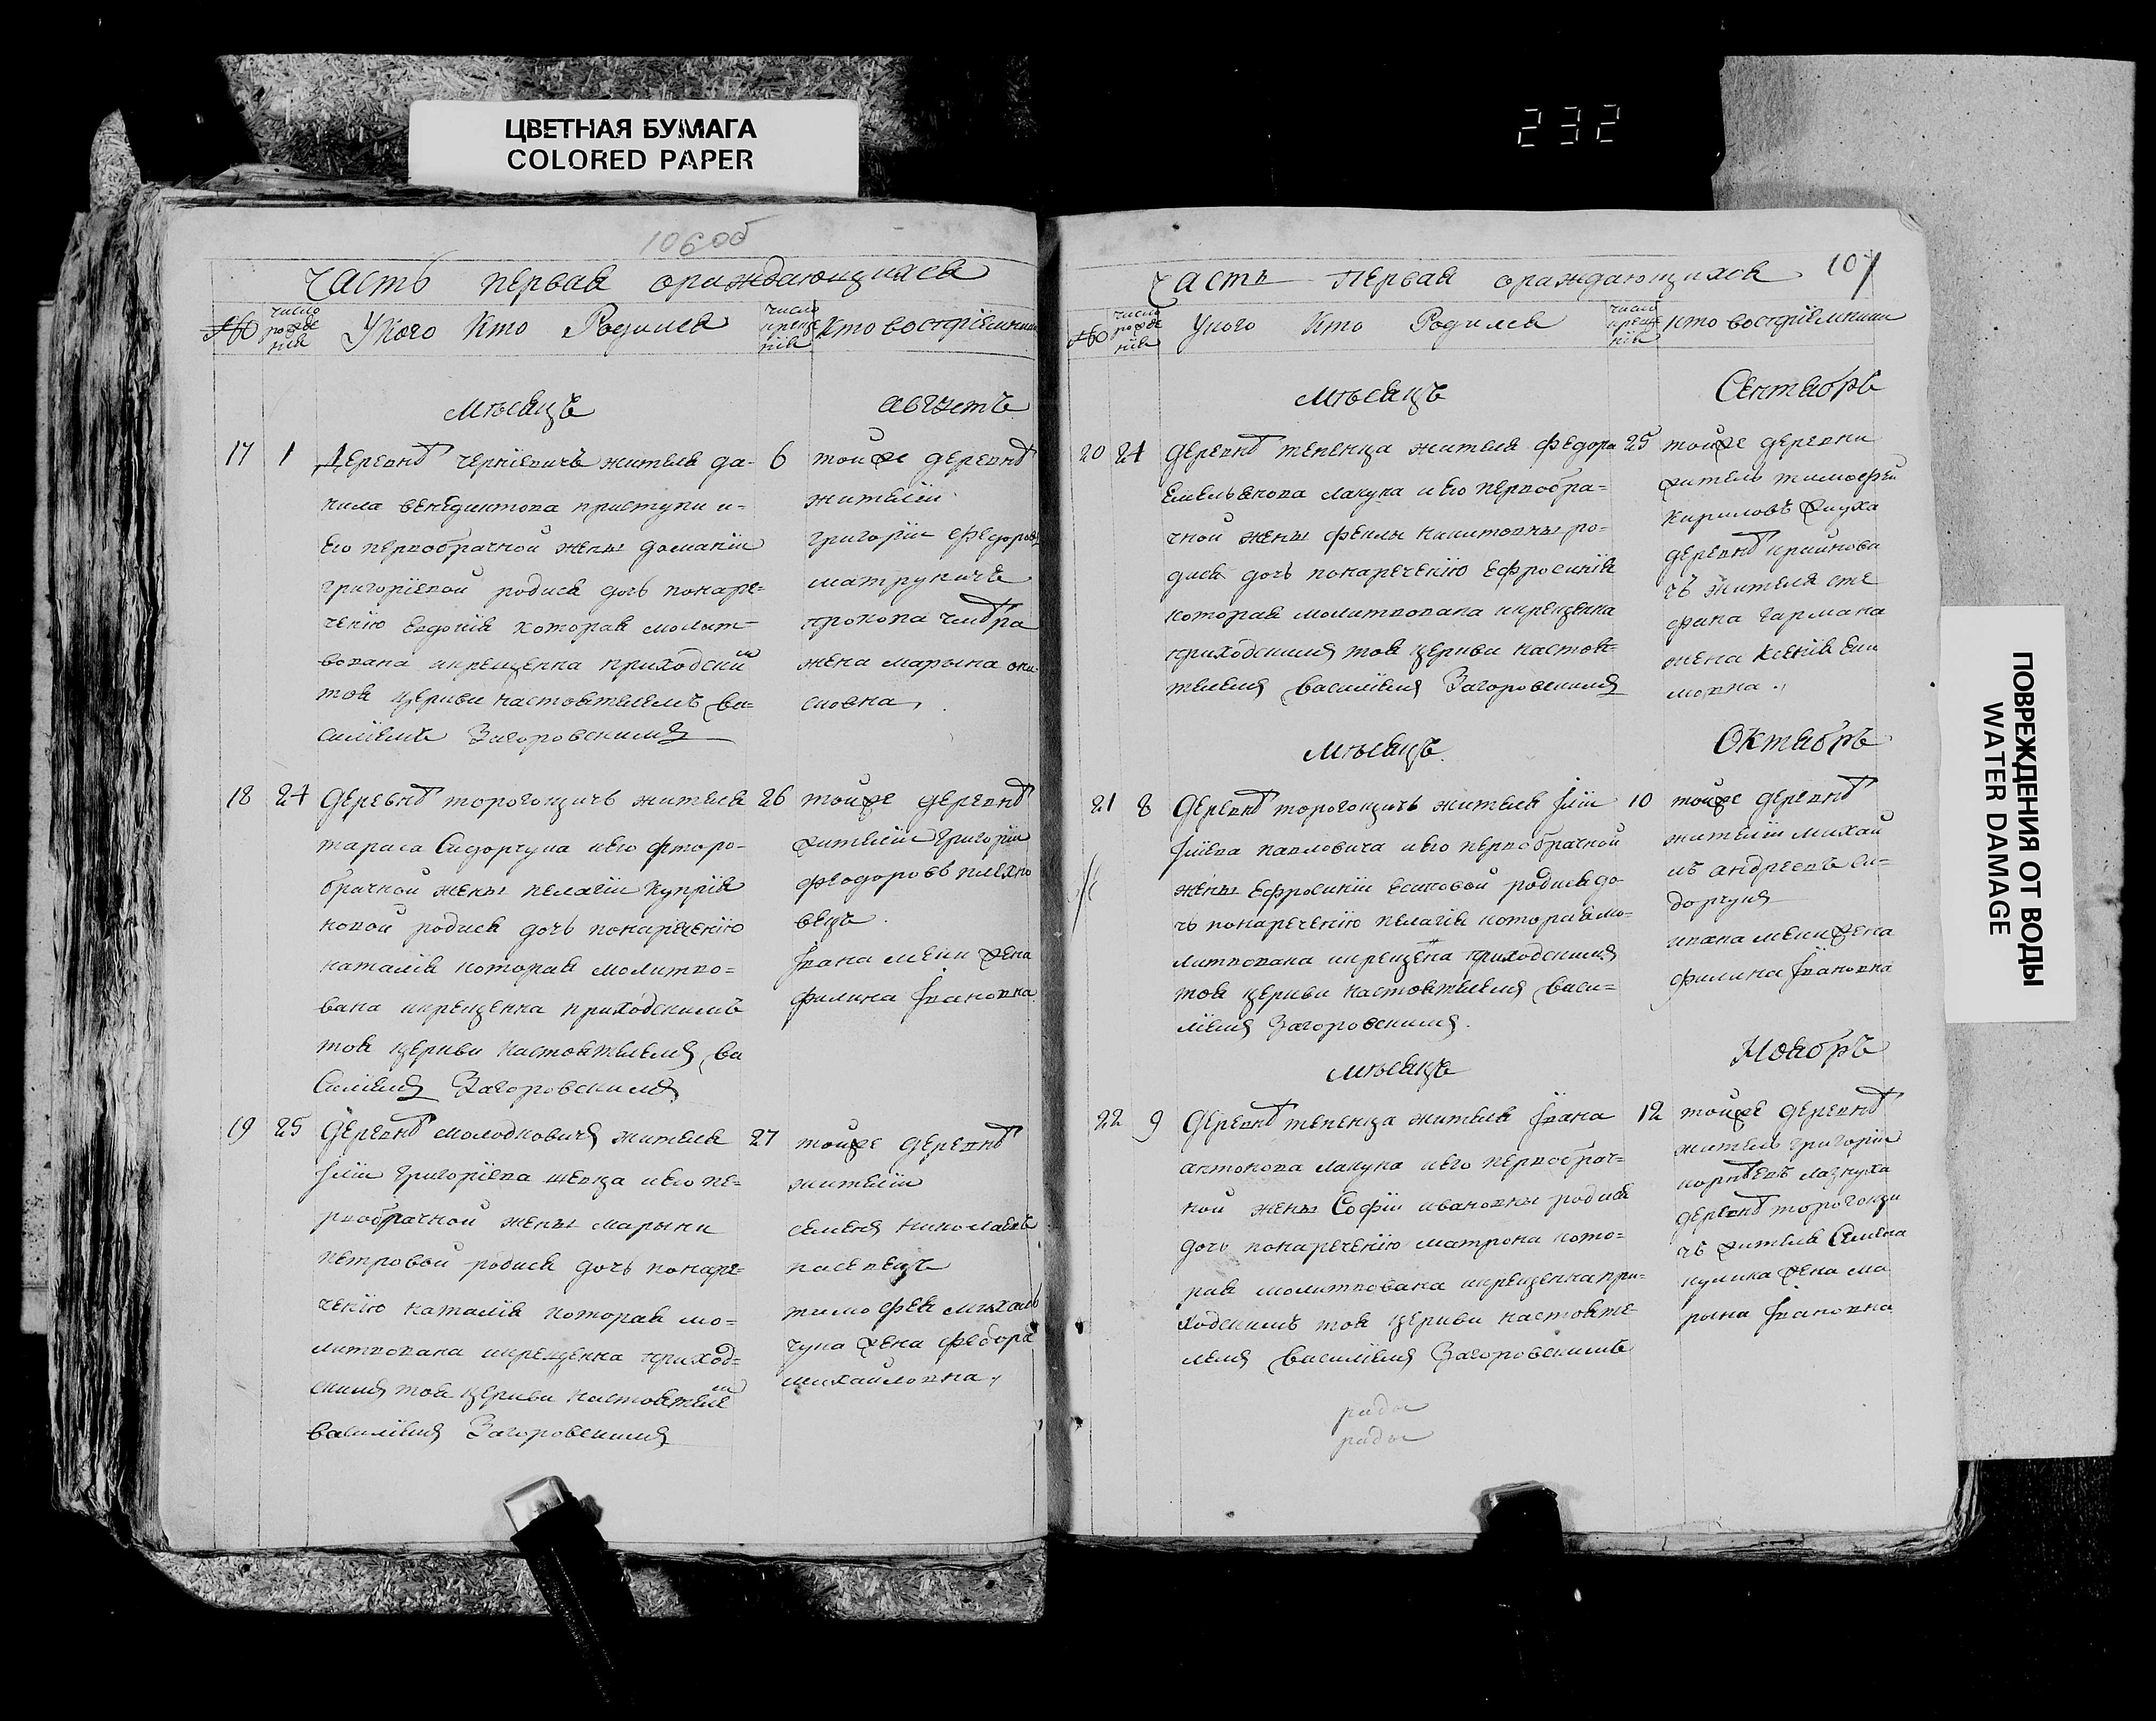 ЦВЕТНАЯ БУМАГА
COLORED PAPER
232
106об
Часть первая ораждающихся
№ число рожде нія Укого Кто Родился число креще нія Кто востріемники
Мѣсяцъ Августъ
17 1 Деревнѣ Чернѣевичъ жителя да-
нила Венедиктова приступи и-
его первобрачной жены доманіи
григоріевой родися дочь понаре-
ченію Евдокія которая молит-
вована икрещенна приходским
тоя церкви настоятелемъ ва-
силіемъ Загоровскимъ
6 тойже деревнѣ
жителіи
григоріи Федоровъ
матруничъ
прокопа
жена марына они-
сковна
18 24 Деревнѣ торогонцичъ жителя
тараса Сидорчука иего фторо-
брачной жены пелагіи Купрія
новой родися дочь понареченію
наталія которая молитво-
вана икрещенна приходскимъ
тоя церкви настоятелемъ ва
силіемъ Загоровскимъ
26 тойже деревнѣ
жителіи Григоріи
феодоровъ плехно
вецъ
Івана жена
филина Івановна
19 25 Деревнѣ молодковичъ жителя
Іліи Григоріева шевца иего пе-
рвобрачной жены марыны
петровой родися дочь понаре-
ченію наталія которая мо-
литвована икрещенна приход-
скимъ тоя церкви настоятелем
василіемъ Загоровскимъ
27 тойже деревнѣ
жителіи
семенъ николаевъ
пасевецъ
тимофея михаль
чука жена федора
михайловна
107
Часть Первая ораждающихся
№ число рожде нія Укого Кто Родился число креще нія кто востріемники
Мѣсяцъ Сентябрь
20 24 Деревнѣ тепенца жителя федора
Емельянова лакуна иего первобра-
чной жены феклы никитовны ро-
дися дочь понареченію Ефросинія
которая молитвована икрещенна
приходскимъ тоя церкви настоя-
телемъ василіемъ Загоровскимъ
25 тойже деревни
житель тимофеи
кириловъ
деревнѣ
чъ жителя сте
фана гармана
жена Ксенія
мовна
Мѣсяцъ Октябрь
21 8 Деревнѣ торогонцичъ жителя Іліи
Іліева павловича иего первобрачной
жены Ефросиніи есиповой родися до
чь понареченію пелагія которая мо-
литвована икрещена приходскимъ
тоя церкви настоятелемъ васи-
ліемъ Загоровскимъ
10 тойже деревнѣ
жителіи михай
лъ андреевъ си-
дорчукъ
ивана жена
филина Івановна
Мѣсяцъ Ноябрь
22 9 Деревнѣ тепенца жителя Івана
антонова лакуна иего первобрач-
ной жены Софіи ивановны родися
дочь понареченію матрона кото-
рая молитвована икрещенна при-
ходскимъ тоя церкви настояте-
лемъ василіемъ Загоровскимъ
12 тойже деревнѣ
житель григоріи
корнѣевъ
деревнѣ торогонци
чъ жителя Семена
кулика жена ма
рына Івановна
ПОВРЕЖДЕНИЯ ОТ ВОДЫ
WATER DAMAGE